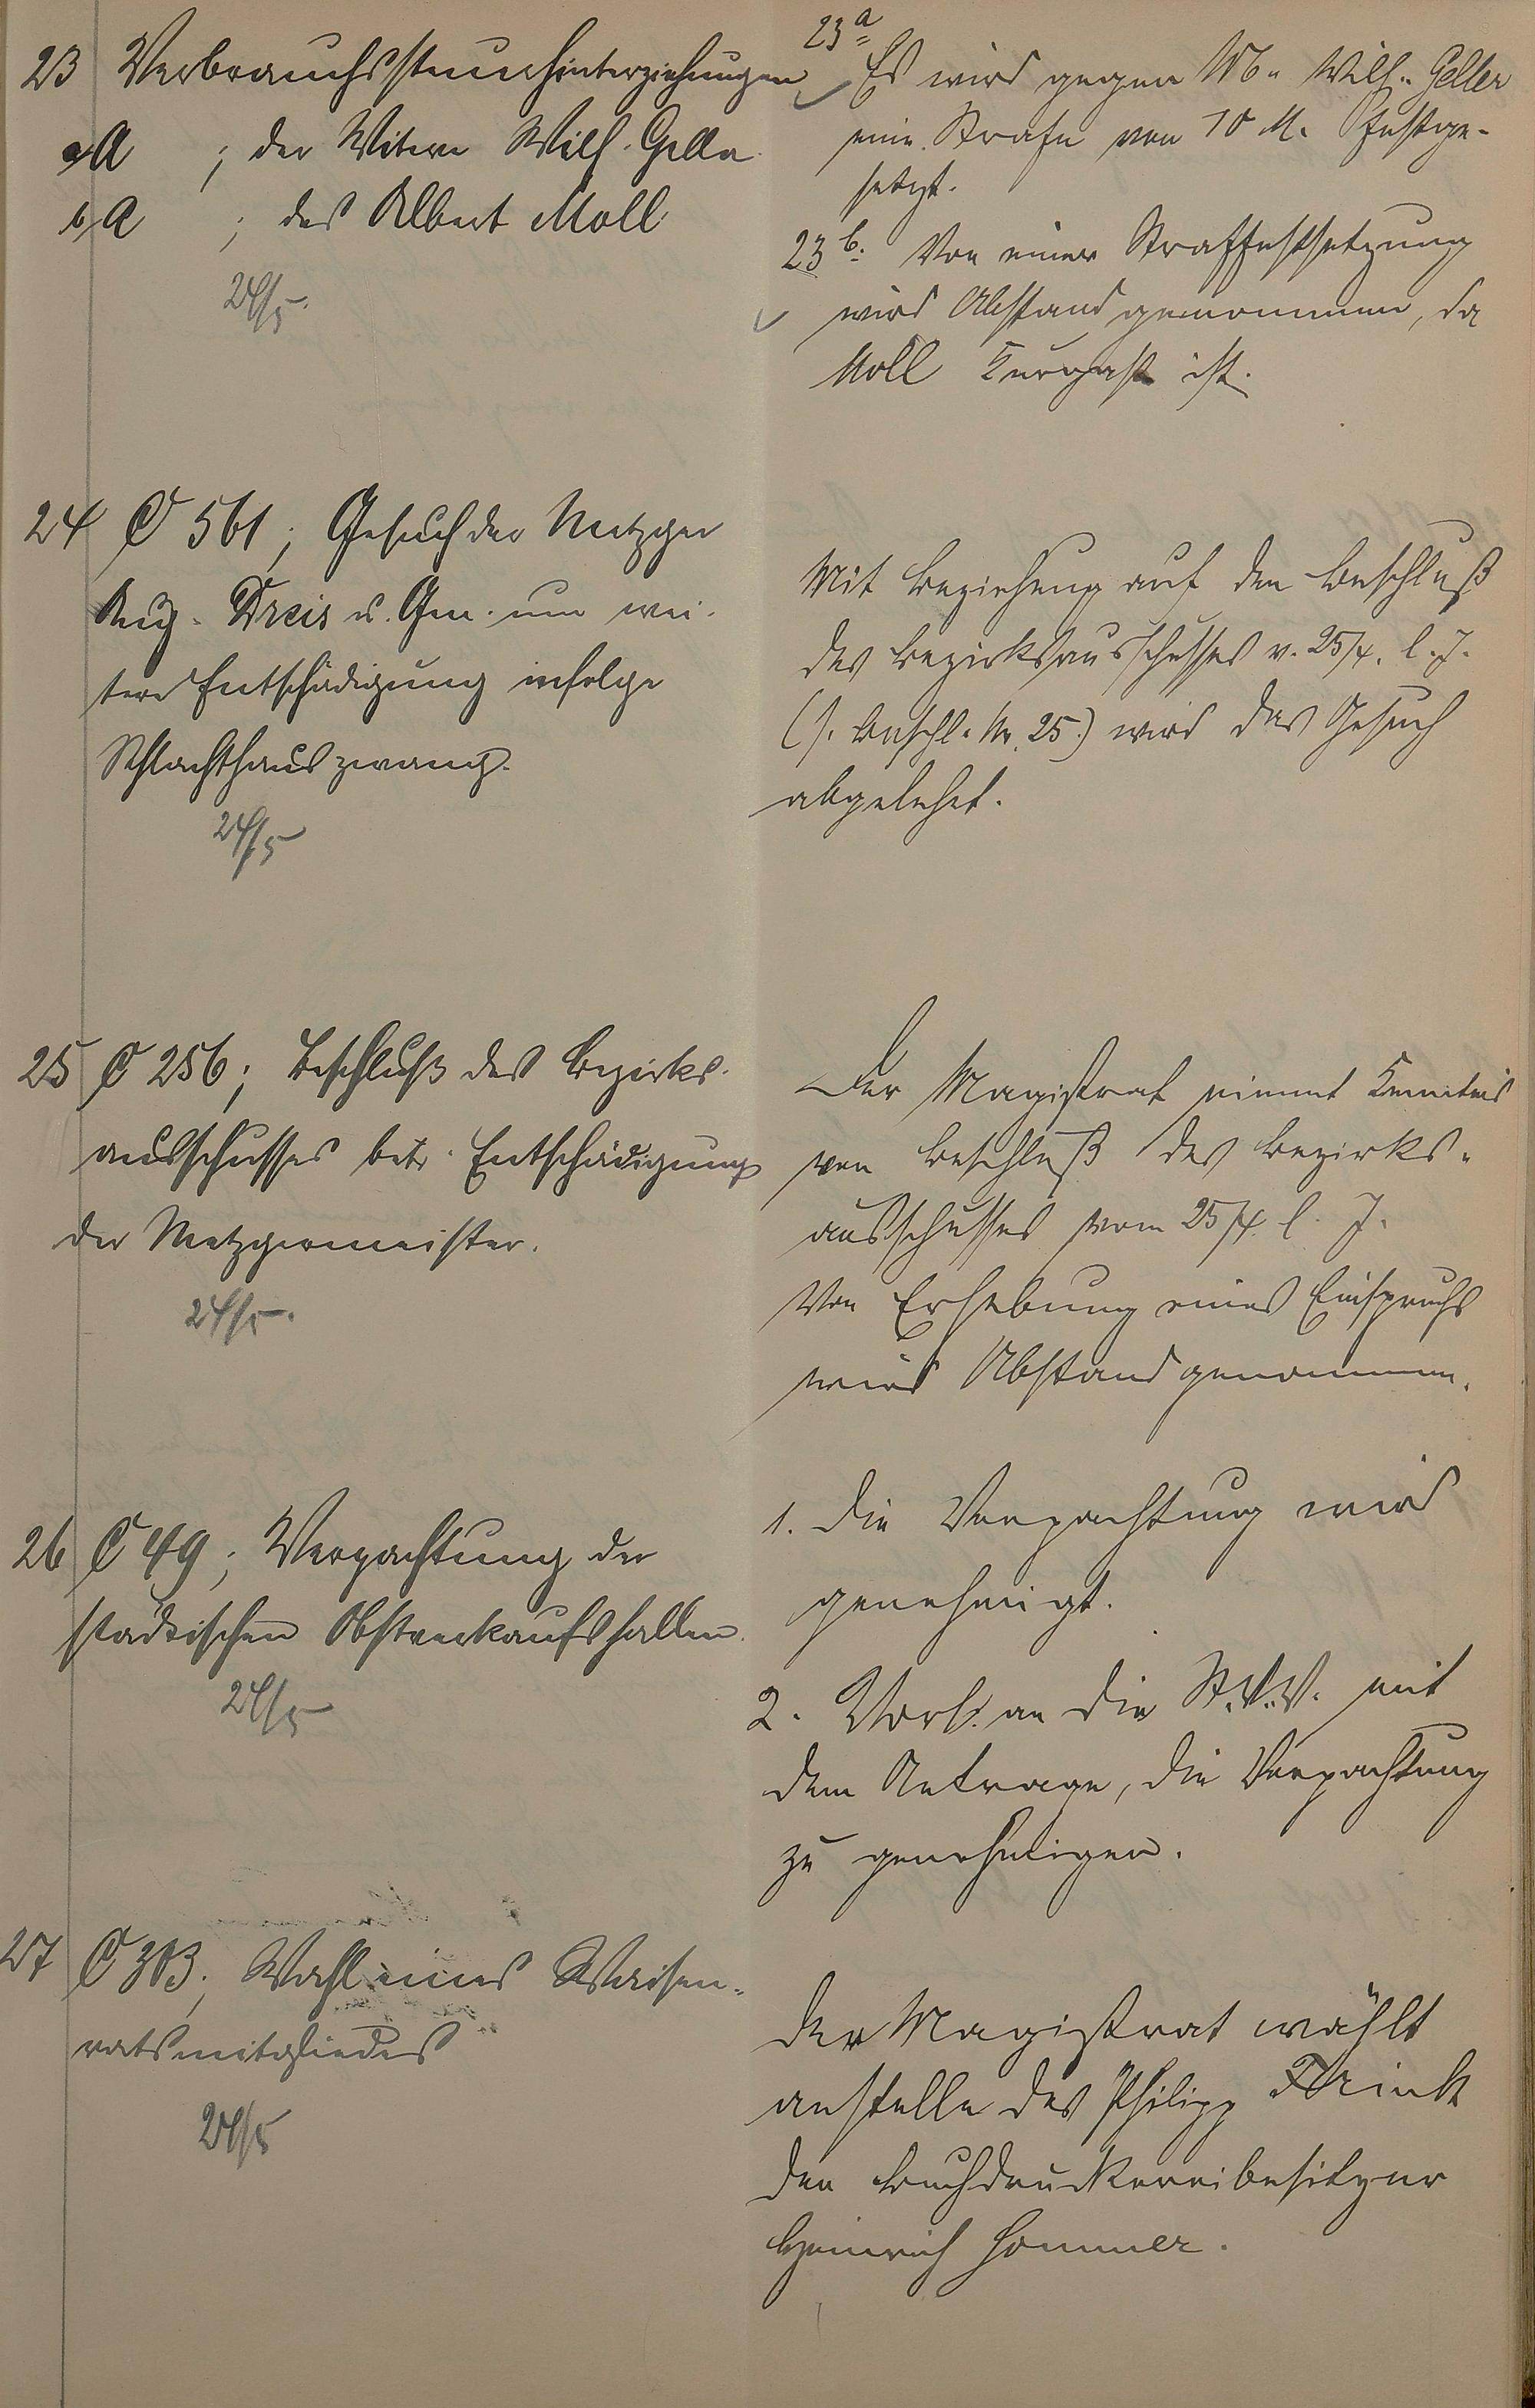 23 Verbrauchssteuerhinterziehungen
a/A ; der Witwe Wilh. Geller
b/A ; des Albert Moll
24/5.
23a Es wird gegen W. Wilh. Geller
eine Strafe von 10 M. festge-
setzt.
23b. Von einer Straffestsetzung
wird Abstand genommen, da
Moll Kurgast ist.
24 C 561; Gesuch der Metzger
Aug. Dreis u. Gen. um wei-
tere Entschädigung infolge
Schlachthauszwang.
24/5
Mit Beziehung auf den Beschluß
des Bezirksausschusses v. 25/4. l. J.
(s. Beschl. Nr. 25.) wird das Gesuch
abgelehnt.
25 C 256; Beschluß des Bezirks-
ausschusses betr. Entschädigung
der Metzgermeister.
24/5.
Der Magistrat nimmt Kenntnis
von Beschluß des Bezirks-
ausschusses vom 25/4. l. J.
Von Erhebung eines Einspruchs
wird Abstand genommen.
26 C 49; Verpachtung der
städtischen Obstverkaufshallen.
24/5
1. Die Verpachtung wird
genehmigt.
2. Vorl. an die St.V.V. mit
dem Antrage, die Verpachtung
zu genehmigen.
27 C 303; Wahl eines Waisen-
ratsmitgliedes
24/5
Der Magistrat wählt
anstelle des Philipp Frink
den Buchdruckereibesitzer
Heinrich Hommer.